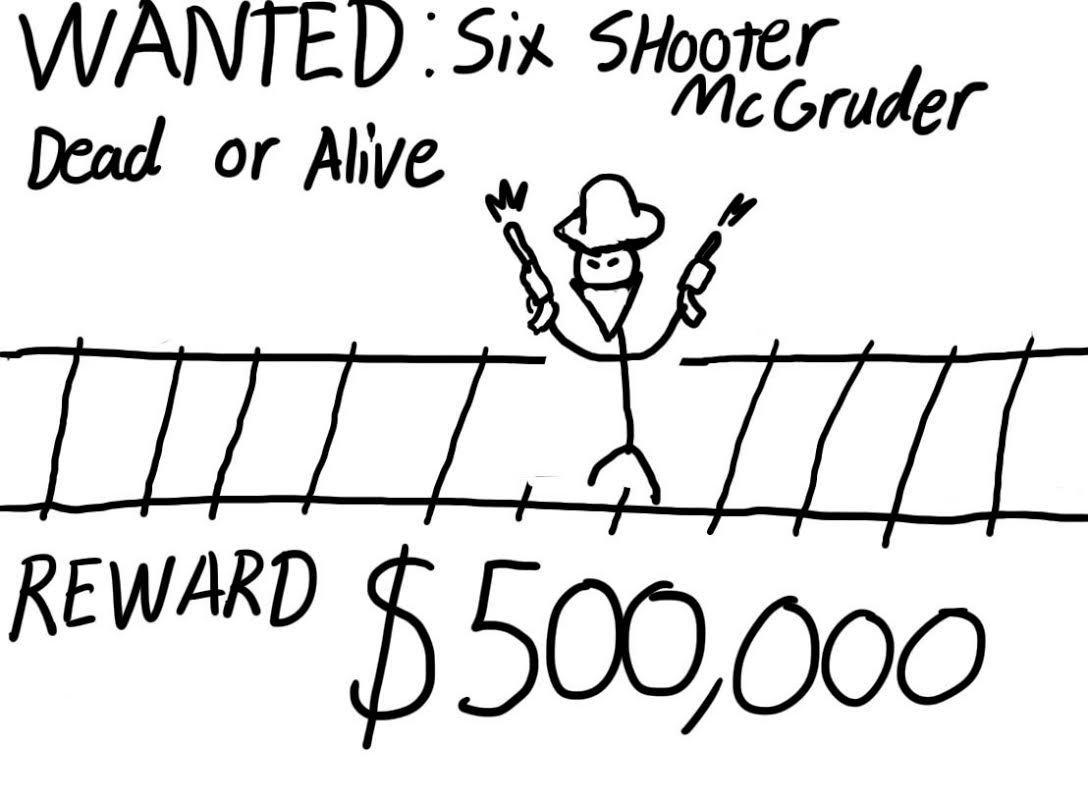 WANTED: Six SHooter
McGruder
Dead or Alive
REWARD $500,000